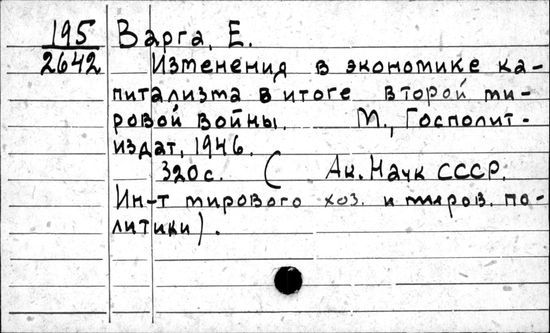 195 Варга, Е.
2642 Изменения в экономике ка-
питализма в итоге второй ми-
ровой войны. М., Госполит-
издат, 1946.
320 с. ( Ак. Наук СССР.
Ин-т мирового хоз. и миров. по-
литики).